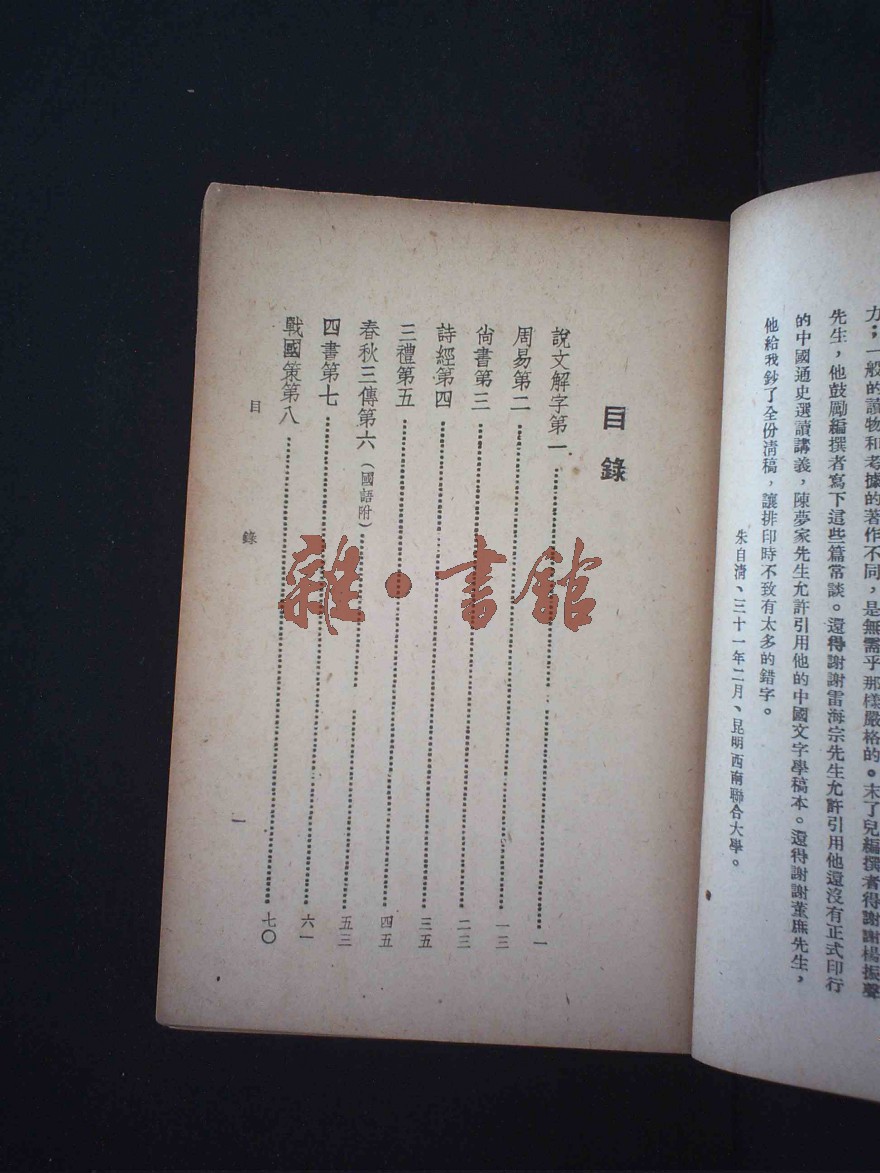 力；一般的讀物和考據的著作不同，是無需乎那樣嚴格的。末了兒編撰者得謝謝楊振聲
先生，他鼓勵編撰者寫下這些篇常談。還得謝謝雷海宗先生允許引用他還沒有正式印行
的中國通史選讀講義，陳夢家先生允許引用他的中國文字學稿本。還得謝謝董庶先生，
他給我鈔了全份清稿，讓排印時不致有太多的錯字。
朱自清、三十一年二月、昆明西南聯合大學。
目錄
說文解字第一……一
周易第二……一三
尙書第三……二三
詩經第四……三五
三禮第五……四五
春秋三傳第六（國語附）……五三
四書第七……六一
戰國策第八……七〇
目錄 一
雜·書館